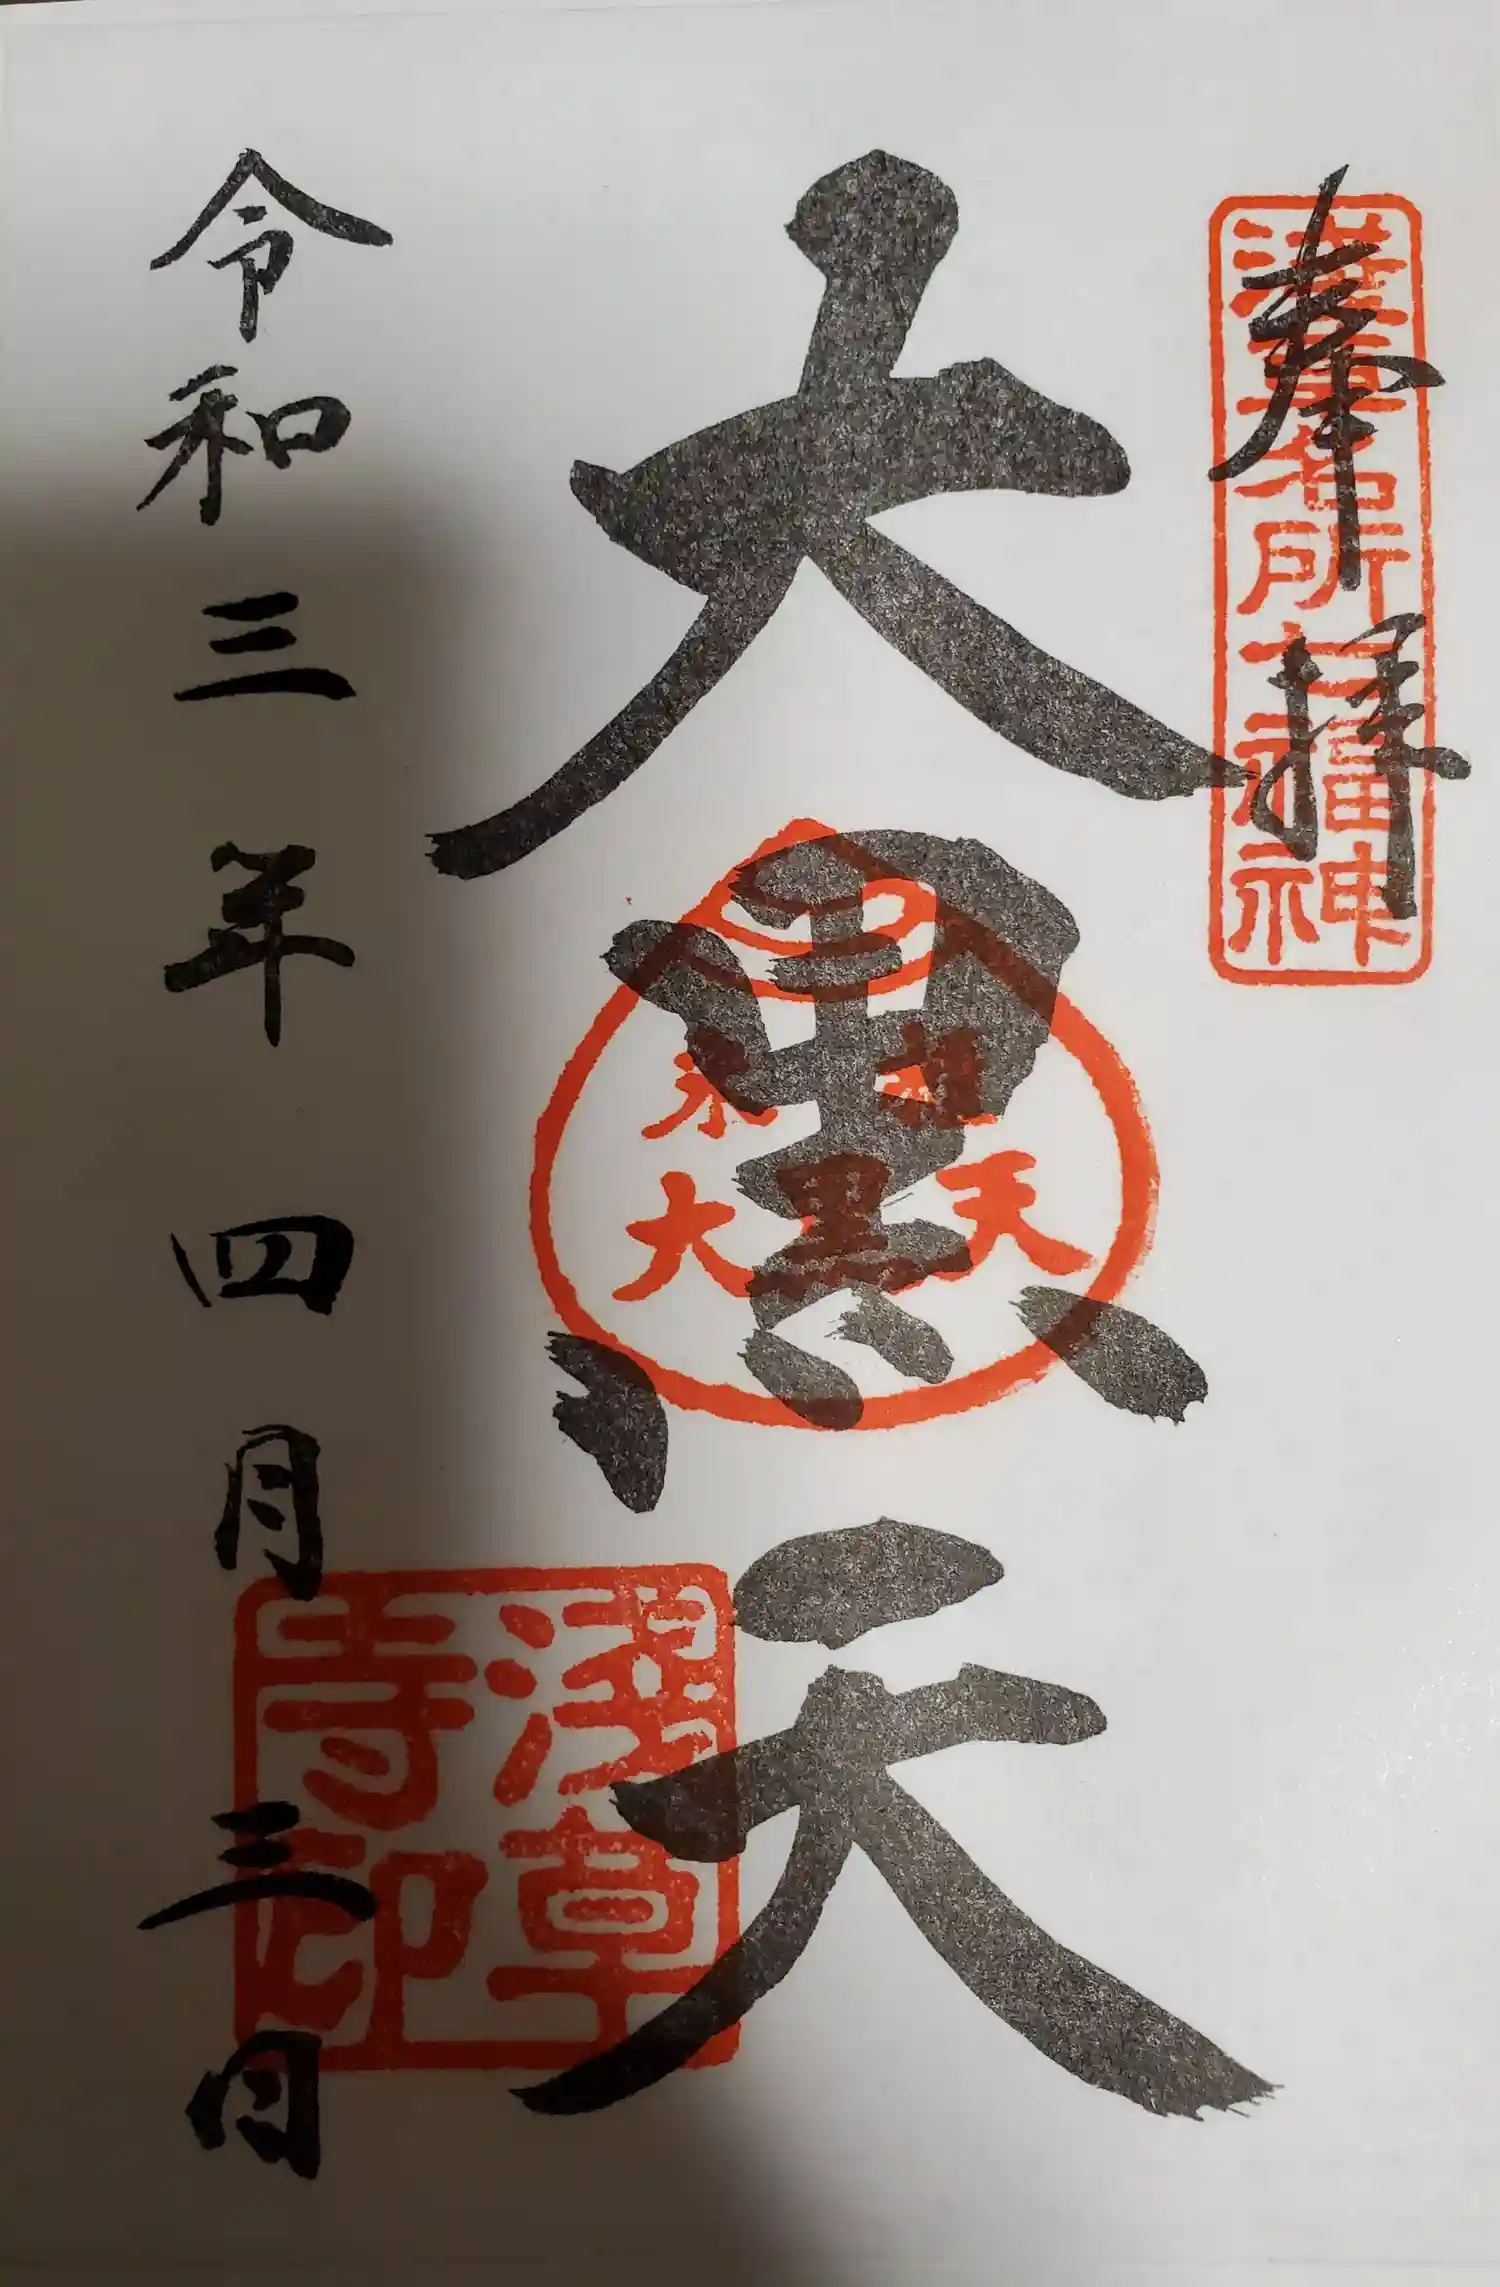 奉拝
浅草名所七福神
大黒天
米趣
大黒天
浅草
寺印
令和三年四月三日